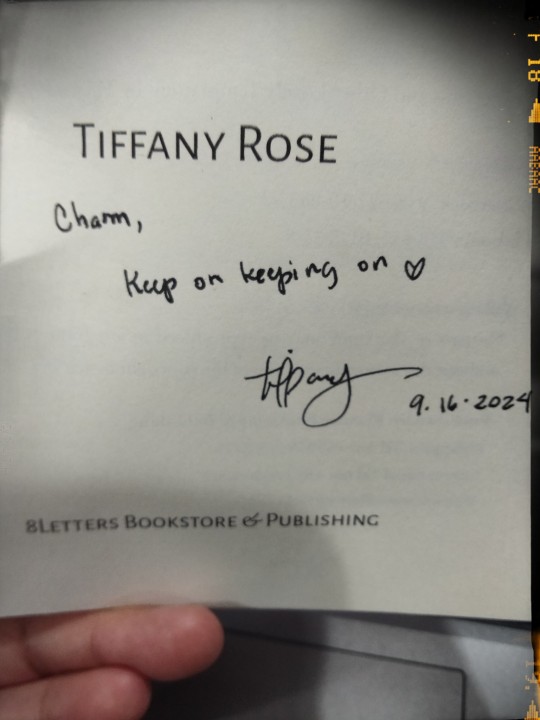 TIFFANY ROSE
Charm,
Keep on keeping on ♡
Tiffany
9.16.2024
8LETTERS BOOKSTORE & PUBLISHING
F 18